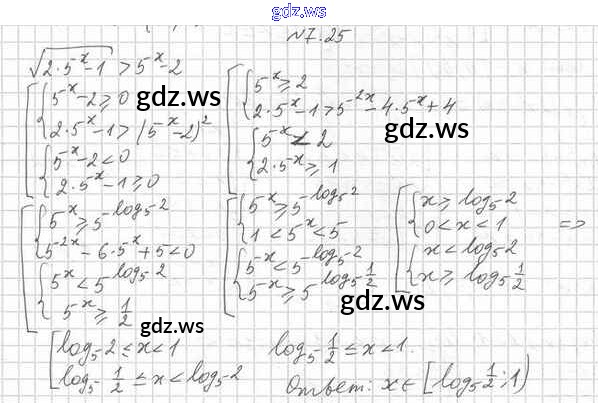 gdz.ws
N 7.25
√(2·5^-x - 1) > 5^-x - 2
[ { 5^-x - 2 ≥ 0
2·5^-x - 1 > (5^-x - 2)^2
{ 5^-x - 2 < 0
2·5^-x - 1 ≥ 0
[ { 5^-x ≥ 2
2·5^-x - 1 > 5^-2x - 4·5^x + 4
{ 5^-x < 2
2·5^-x ≥ 1
gdz.ws
gdz.ws
[ { 5^x ≥ 5^-log_5-2
5^-2x - 6·5^-x + 5 < 0
{ 5^x < 5^-log_5-2
5^-x ≥ 1/2
[ { 5^x ≥ 5^-log_5-2
1 < 5^x < 5
{ 5^-x < 5^-log_5-2
5^-x ≥ 5^-log_5-1/2
[ { x ≥ log_5-2
0 < x < 1
{ x < log_5-2
x ≥ log_5-1/2
=>
gdz.ws
gdz.ws
[ log_5-2 ≤ x < 1
log_5-1/2 ≤ x < log_5-2
log_5-1/2 ≤ x < 1.
Ответ: x ∈ [log_5 1/2; 1)